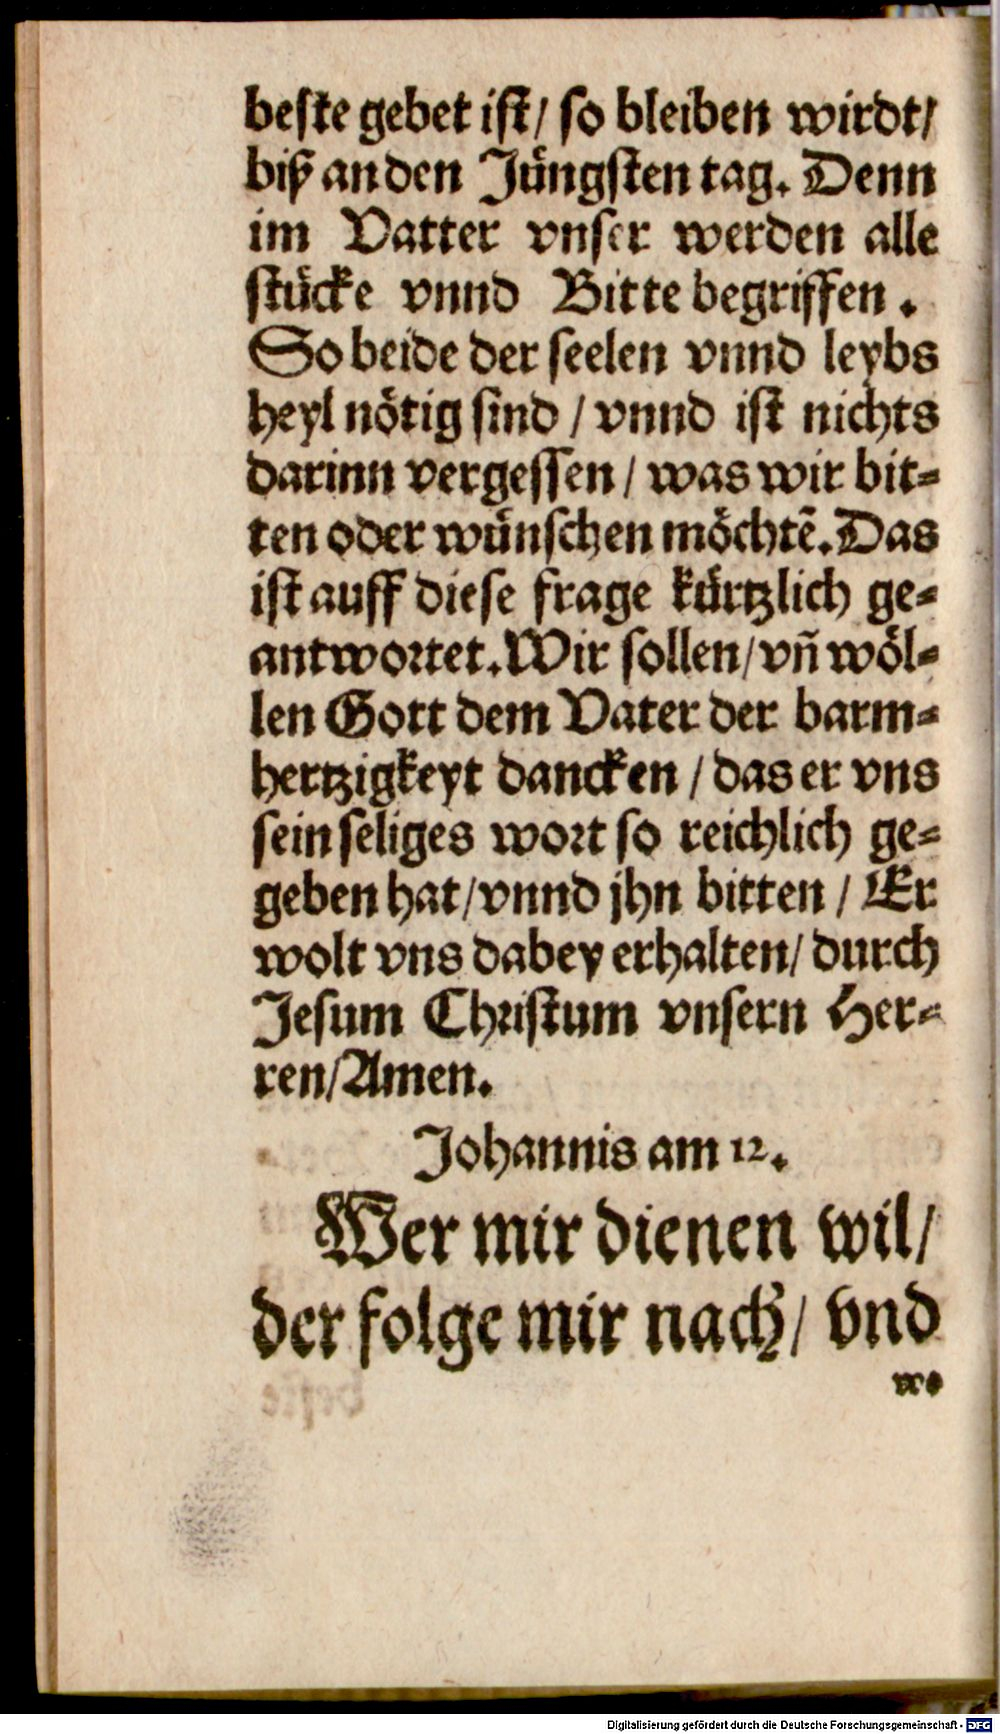 beste gebet ist/ so bleiben wirdt/
biß an den Jüngsten tag. Denn
im Vatter vnser werden alle
stücke vnnd Bitte begriffen.
So beide der seelen vnnd leybs
heyl nötig sind/ vnnd ist nichts
darinn vergessen/ was wir bit-
ten oder wünschen möchtē. Das
ist auff diese frage kürtzlich ge-
antwortet. Wir sollen/ vñ wöl-
len Gott dem Vater der barm-
hertzigkeyt dancken/ das er vns
sein seliges wort so reichlich ge-
geben hat/ vnnd jhn bitten/ Er
wolt vns dabey erhalten/ durch
Jesum Christum vnsern Her-
ren/ Amen.
Johannis am 12.
Wer mir dienen wil/
der folge mir nach/ vnd
wo
Digitalisierung gefördert durch die Deutsche Forschungsgemeinschaft - DFG